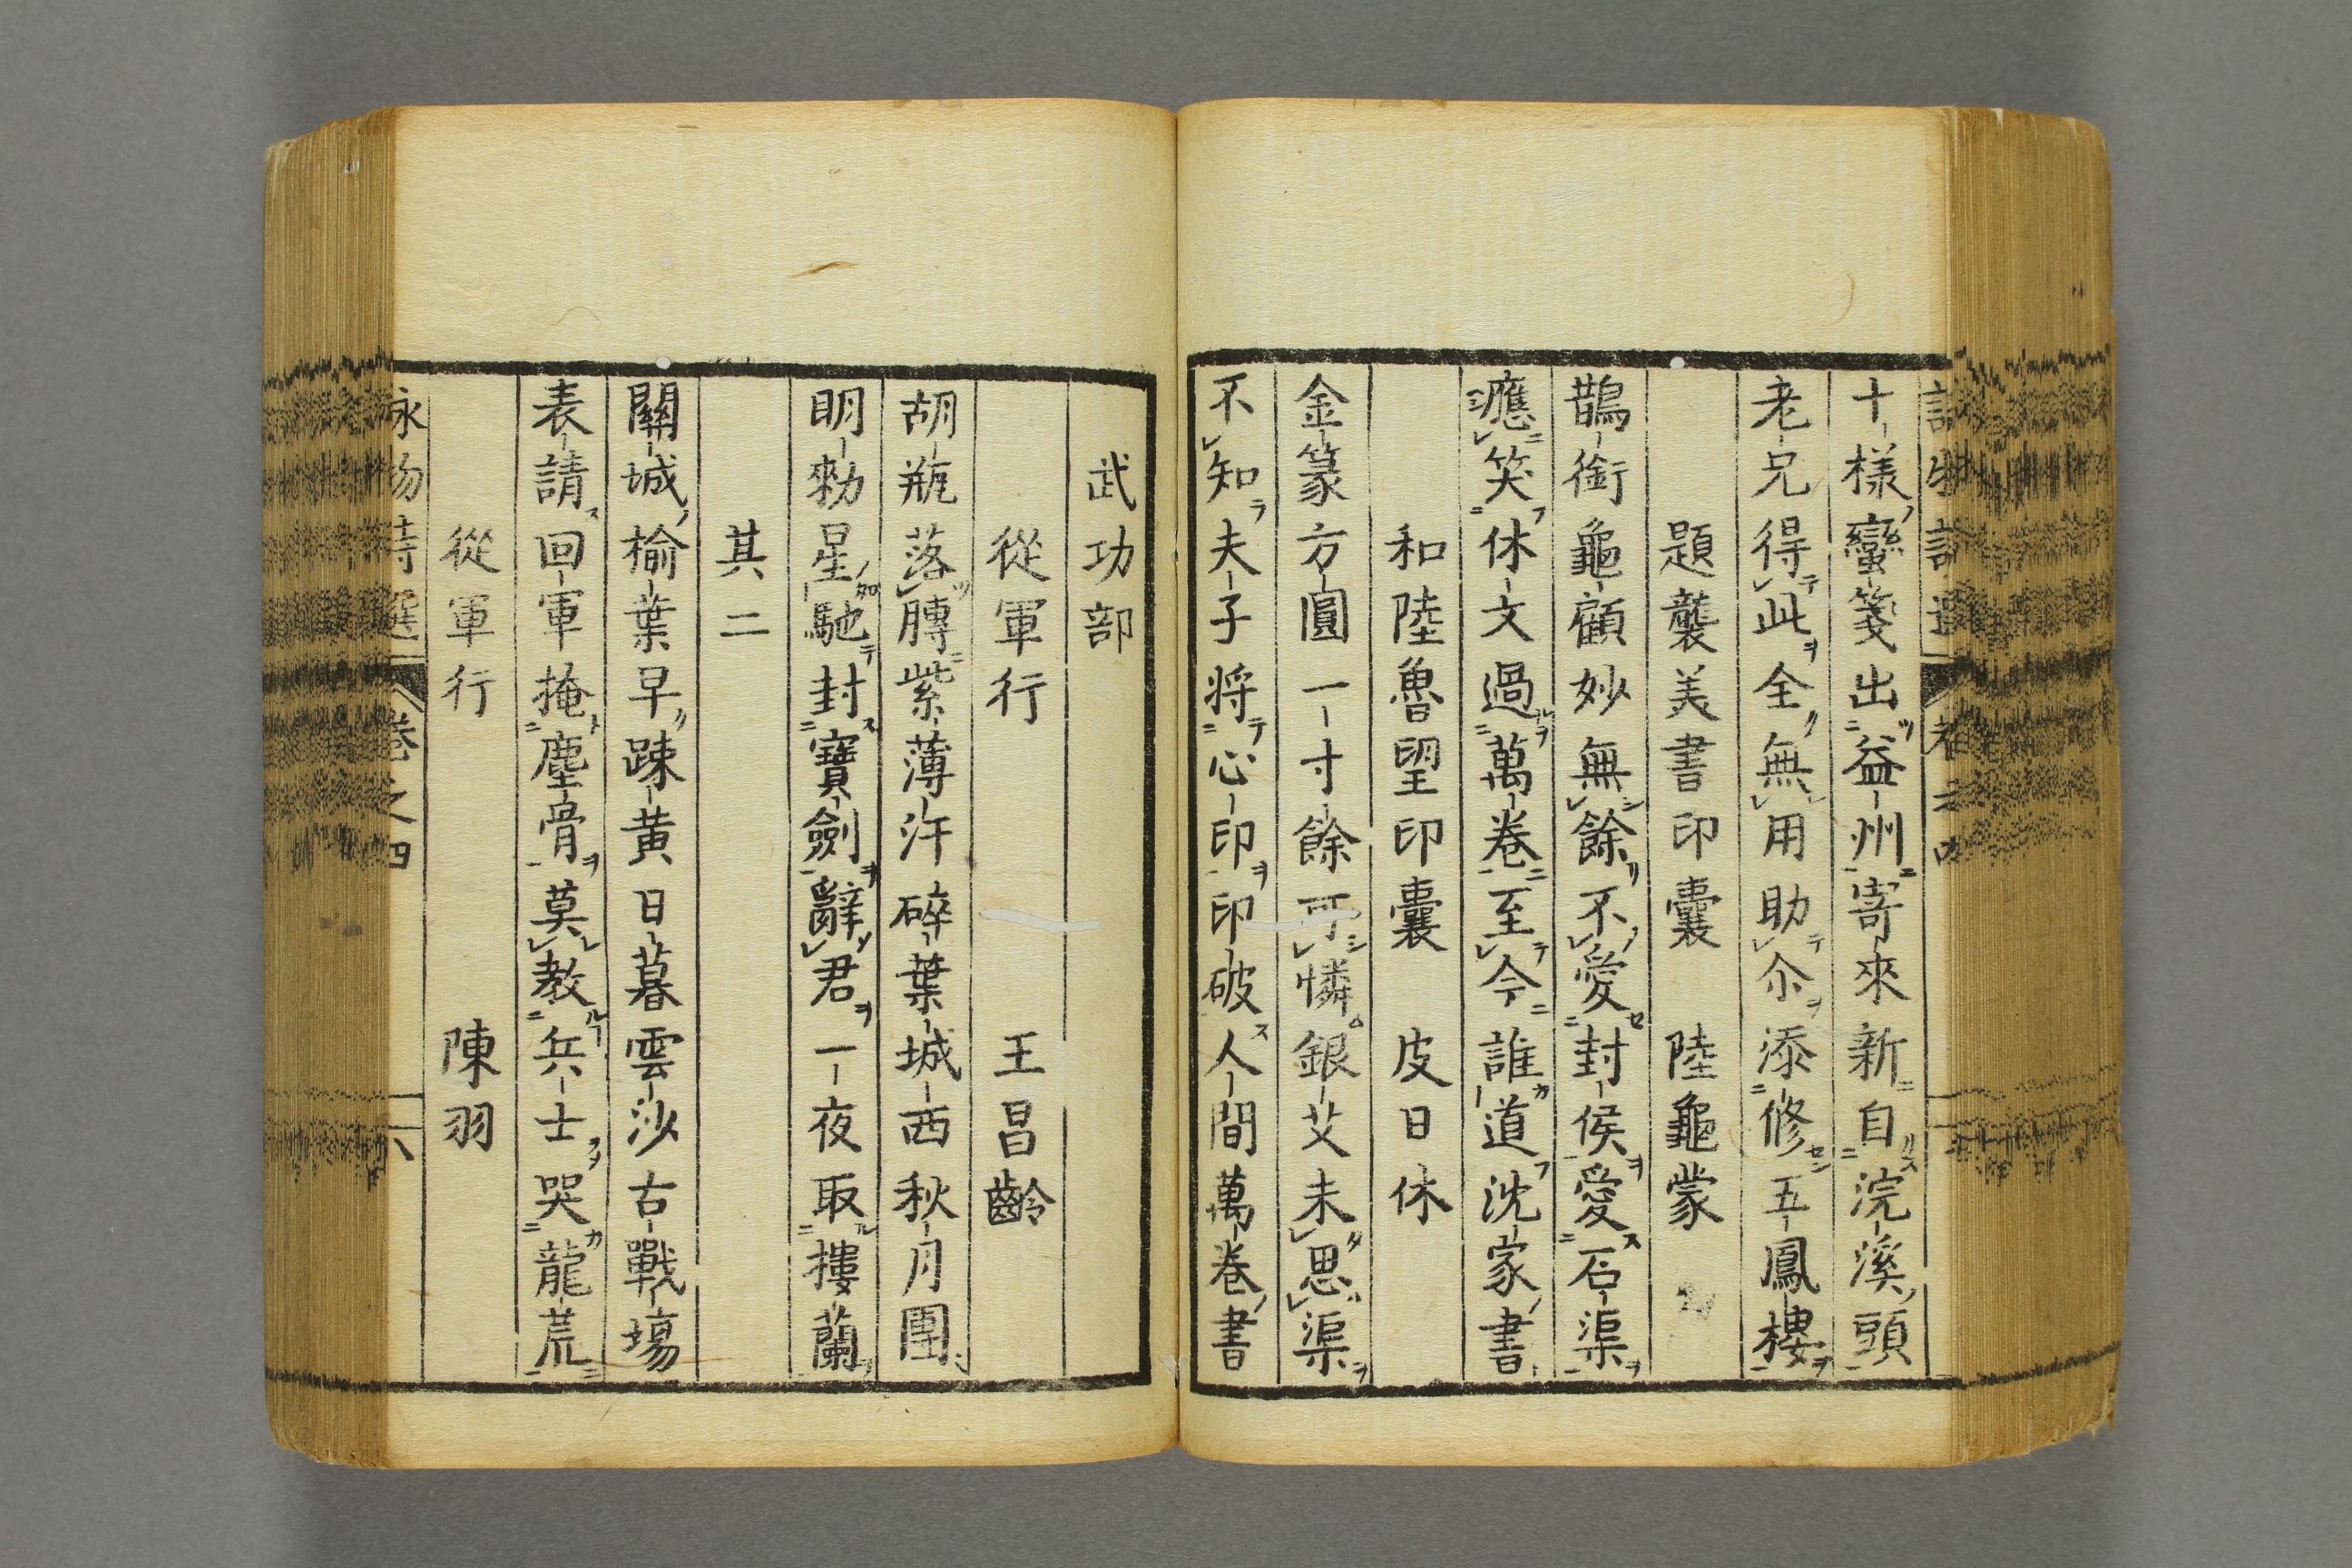 十樣蠻箋出益州寄來新自浣溪頭
老兄得此全無用助尒添修五鳳樓
題襲美書印囊 陸龜蒙
鵲銜龜顧妙無餘不愛封侯愛石渠
應笑休文過萬卷至今誰道沈家書
和陸魯望印囊 皮日休
金篆方圓一寸餘可憐銀艾未思渠
不知夫子將心印印破人間萬卷書
武功部
從軍行 王昌齡
胡瓶落膊紫薄汗碎葉城西秋月團
明勑星馳封寶劍辭君一夜取樓蘭
其二
關城榆葉早踈黄日暮雲沙古戰場
表請回軍掩塵骨莫教兵士哭龍荒
從軍行 陳羽
詠物詩選 卷之四 六